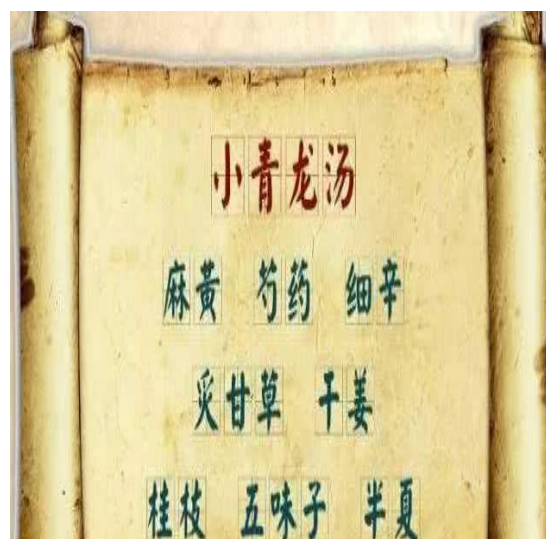 小青龙汤
麻黄 芍药 细辛
炙甘草 干姜
桂枝 五味子 半夏